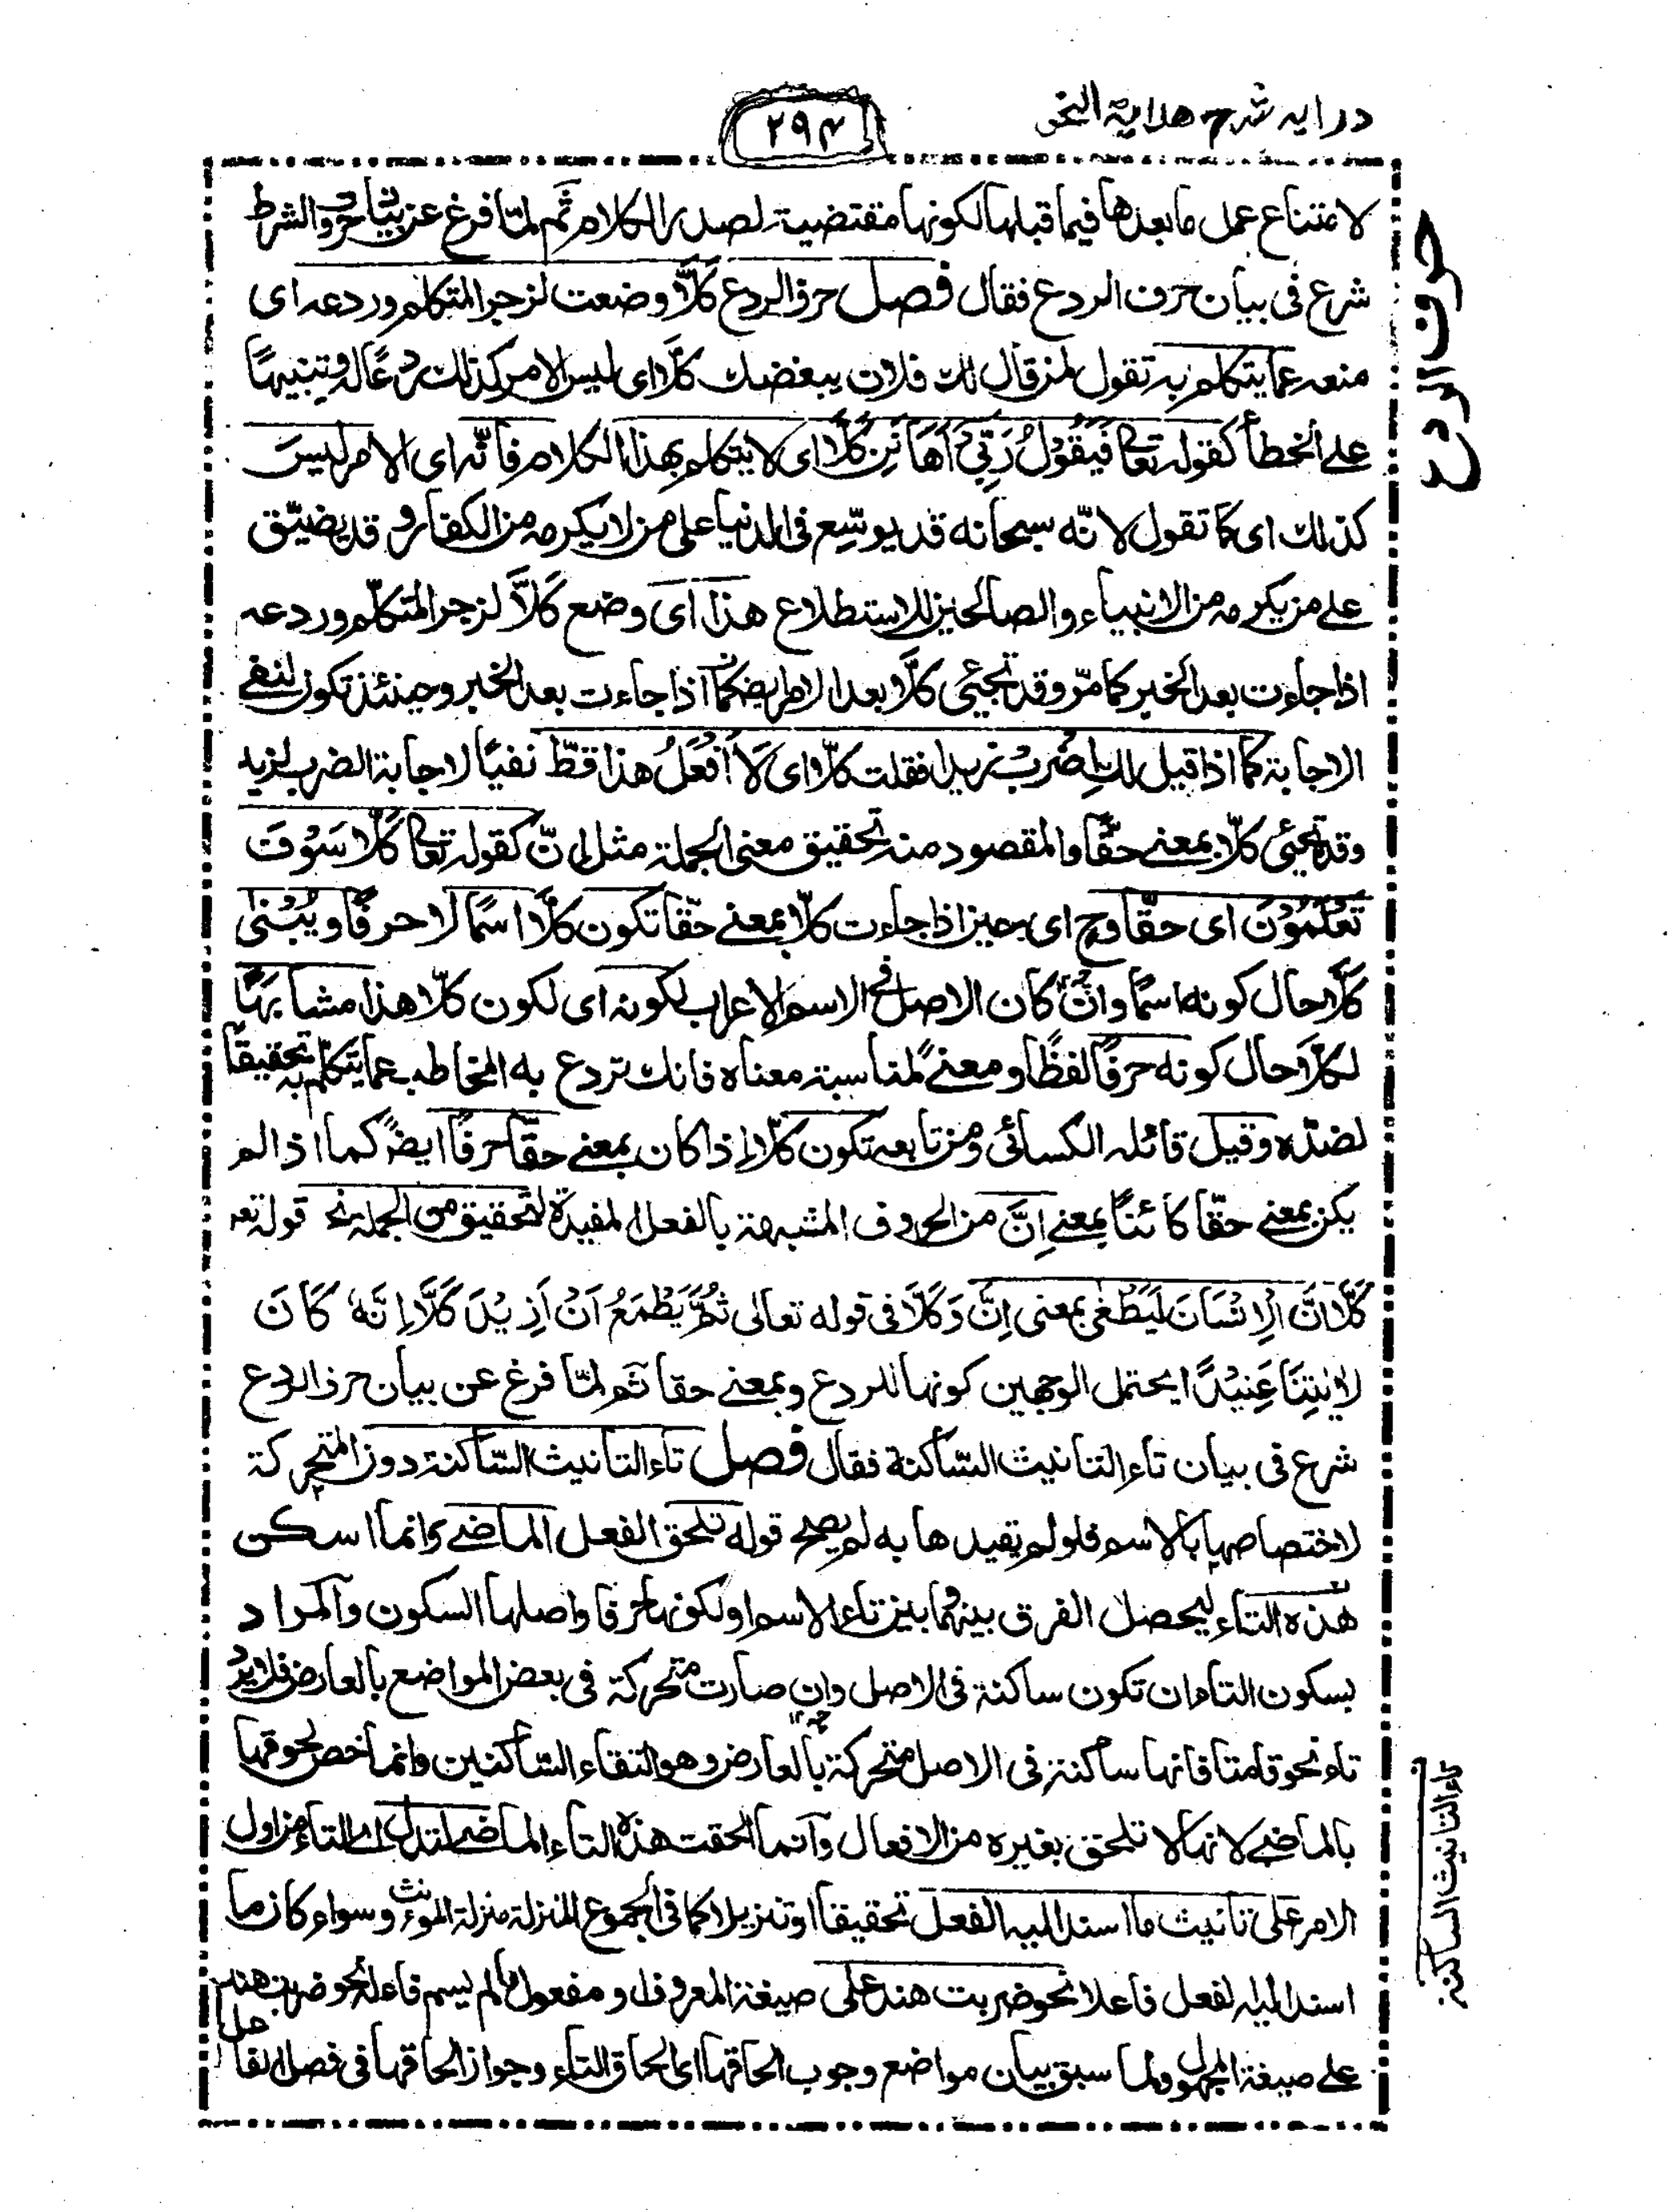 درایه شرح هدایة النحو
۲۹۴
حرف الردع
لامتناع عمل مابعدها فیما قبلها لکونها مقتضیة لصدر الکلام ثم لمّا فرغ عن بیان حروف الشرط
شرع فی بیان حرف الردع فقال فصل حرف الردع کَلَّا وضعت لزجر المتکلم وردعه ای
منعه عما یتکلم به تقول لمن قال لك فلان یبغضك کَلَّا ای لیس الامر کذلك ردعًا له وتنبیهًا
علی الخطأ کقوله تعالی فَیَقُوْلُ رَبِّیْ اَهَانَنِ کَلَّا ای لا یتکلم بهذا الکلام فانّه ای الامر لیس
کذلك ای کما تقول لانّه سبحانه قد یوسّع فی الدنیا علی من لا یکرمه من الکفار و قد یضیّق
علی من یکرمه من الانبیاء والصالحین للاستطلاع هذا ای وضع کَلَّا لزجر المتکلّم وردعه
اذا جاءت بعد الخبر کما مرّ وقد تجیئ کَلَّا بعد الامر ایضا کما اذا جاءت بعد الخبر وحینئذ تکون لنفی
الاجابة کما اذا قیل لك اِضْرِبْ زیدا فقلت کلّا ای لَا اَفْعَلُ هذا قطّ نفیًا لاجابة الضرب لزید
وقد تجیئ کلّا بمعنی حقًّا والمقصود منه تحقیق معنی الجملة مثل اِنّ کقوله تعالی کَلَّا سَوْفَ
تَعْلَمُوْنَ ای حقًّا وح ای حین اذا جاءت کلّا بمعنی حقّا تکون کَلَّا اسمًا لا حرفًا ویُبْنٰی
کَلَّا حال کونه اسمًا وان کان الاصل فی الاسم الاعراب لکونه ای لکون کلّا هذا مشابهًا
لکَلَّا حال کونه حرفًا لفظًا ومعنیً لمناسبة معناه فانك تردع به المخاطب عما یتکلم به تحقیقًا
لضدّه وقیل قائله الکسائی ومن تابعه تکون کَلَّا اذا کان بمعنی حقّا حرفًا ایضًا کما اذا لم
یکن بمعنی حقّا کائنًا بمعنی اِنَّ من الحروف المشبهة بالفعل المفیدة لتحقیق من الجملة نحو قوله تعه
کَلَّا اِنَّ الْاِنْسَانَ لَیَطْغٰی بمعنی اِنَّ وَکَلَّا فی قوله تعالی ثُمَّ یَطْمَعُ اَنْ اَزِیْدَ کَلَّا اِنَّهٗ کَانَ
لِاٰیٰتِنَا عَنِیْدًا یحتمل الوجهین کونها للردع وبمعنی حقا ثم لمّا فرغ عن بیان حرف الردع
شرع فی بیان تاء التانیث السّاکنة فقال فصل تاء التانیث السّاکنة دون المتحرکة
لاختصاصها بالاسم فلولم یقیدها به لم یصح قوله تلحق الفعل الماضی وانما اسکن
هذه التاء لیحصل الفرق بینهما بین تاء الاسم او لکونها حرفا واصلها السکون والمراد
بسکون التاء ان تکون ساکنة فی الاصل وان صارت متحرکة فی بعض المواضع بالعارض فلا یرد
تاء نحو قامتا فانها ساکنة فی الاصل متحرکة بالعارض وهو التقاء السّاکنین وانما خص لحوقها
بالماضی لانها لا تلحق بغیره من الافعال وانما الحقت هذه التاء الماضی لتدل التاء من اول
الامر علی تانیث ما اسند الیه الفعل تحقیقًا او تنزیلا کما فی الجموع المنزلة منزلة المؤنث وسواء کان ما
اسند الیه الفعل فاعلا نحو ضربت هند علی صیغة المعروف او مفعول ما لم یسم فاعله نحو ضربت هند
علی صیغة المجهول ولما سبق بیان مواضع وجوب الحاقها ای الحاق التاء وجواز الحاقها فی فصل الفاعل
تاء التانیث الساکنه